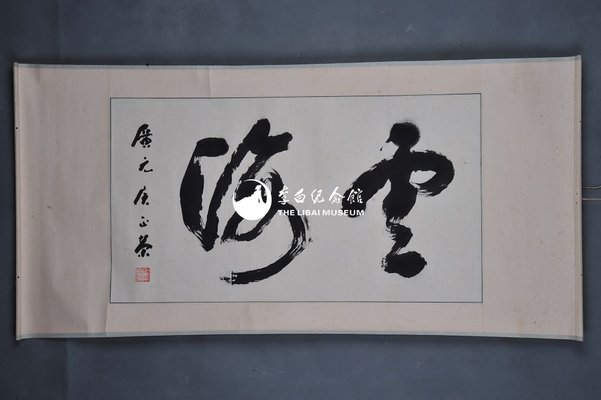 雲海
廣元侯正荣
李白纪念馆
THE LIBAI MUSEUM